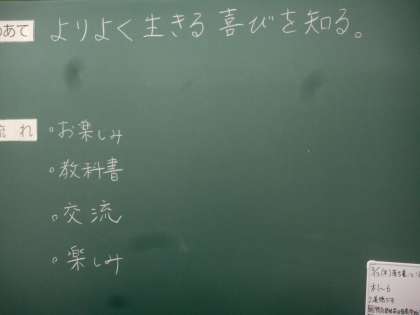 めあて よりよく生きる喜びを知る。
流れ
・お楽しみ
・教科書
・交流
・楽しみ